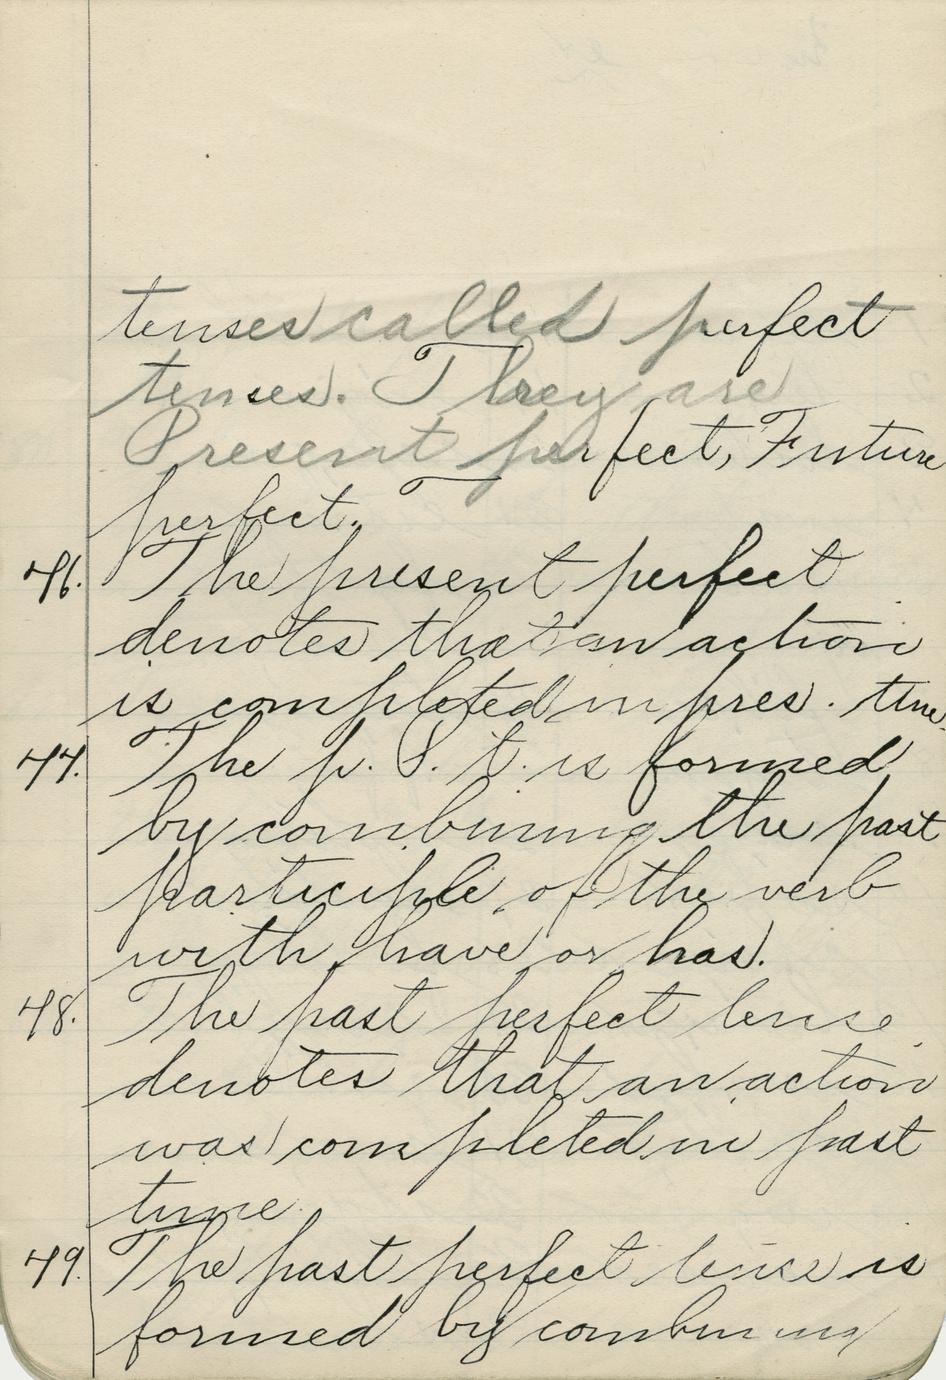 tenses called perfect
tenses. They are
Present perfect, Future
perfect.
46. The present perfect
denotes that an action
is completed in pres. time.
47. The p. P. t. is formed
by combining the past
participle of the verb
with have or has.
48. The past perfect tense
denotes that an action
was completed in past
time.
49. The past perfect tense is
formed by combining